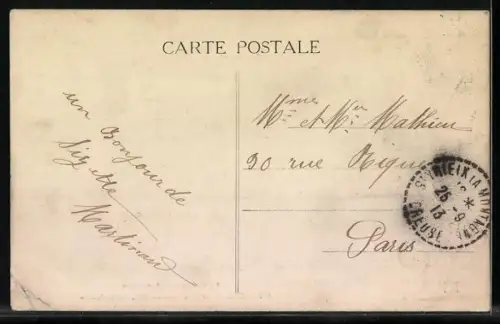 CARTE POSTALE
un Bonjour de
Sizette
Martinaud
Mme et Mr Mathieu
20 rue Rique
Paris
ST YRIEIX LA MONTAGNE
* 
25 -9
13
CREUSE